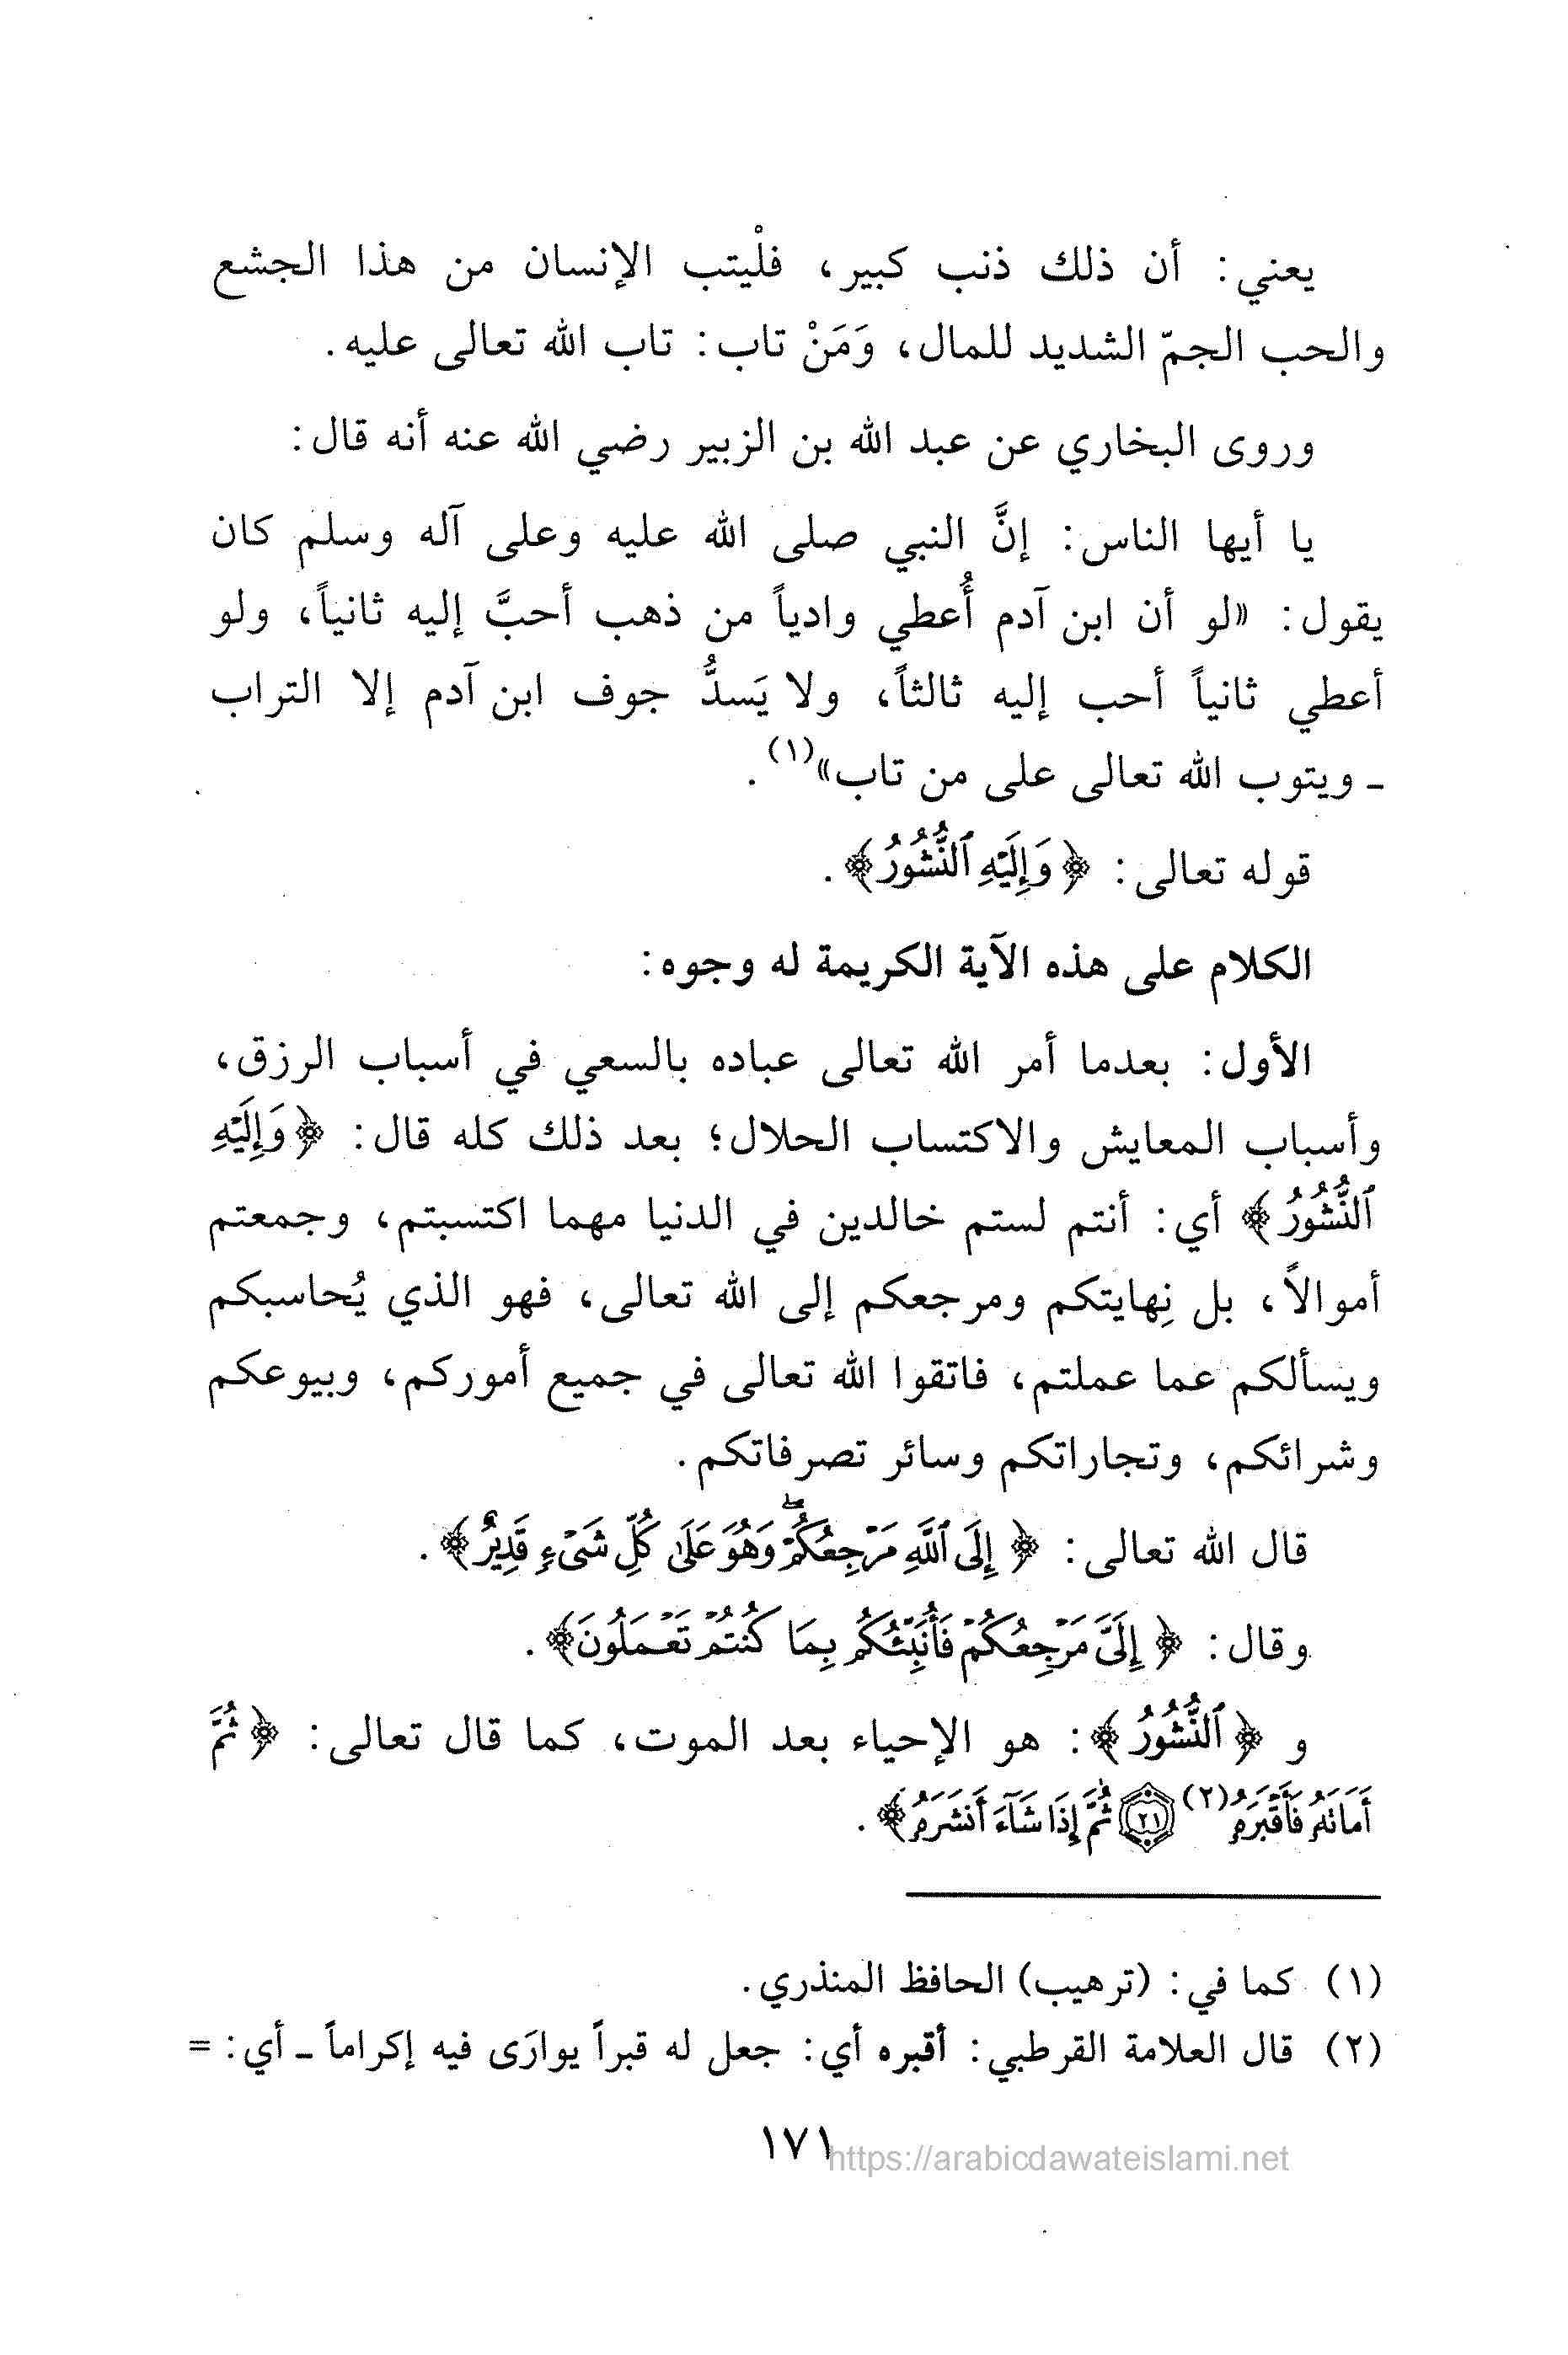 يعني: أن ذلك ذنب كبير، فلْيتب الإنسان من هذا الجشع
والحب الجمّ الشديد للمال، وَمَنْ تاب: تاب الله تعالى عليه.
وروى البخاري عن عبد الله بن الزبير رضي الله عنه أنه قال:
يا أيها الناس: إنَّ النبي صلى الله عليه وعلى آله وسلم كان
يقول: «لو أن ابن آدم أُعطي وادياً من ذهب أحبَّ إليه ثانياً، ولو
أعطي ثانياً أحب إليه ثالثاً، ولا يَسدُّ جوف ابن آدم إلا التراب
ـ ويتوب الله تعالى على من تاب»(١).
قوله تعالى: ﴿وَإِلَيْهِ ٱلنُّشُورُ﴾.
الكلام على هذه الآية الكريمة له وجوه:
الأول: بعدما أمر الله تعالى عباده بالسعي في أسباب الرزق،
وأسباب المعايش والاكتساب الحلال؛ بعد ذلك كله قال: ﴿وَإِلَيْهِ
ٱلنُّشُورُ﴾ أي: أنتم لستم خالدين في الدنيا مهما اكتسبتم، وجمعتم
أموالاً، بل نِهايتكم ومرجعكم إلى الله تعالى، فهو الذي يُحاسبكم
ويسألكم عما عملتم، فاتقوا الله تعالى في جميع أموركم، وبيوعكم
وشرائكم، وتجاراتكم وسائر تصرفاتكم.
قال الله تعالى: ﴿إِلَى ٱللَّهِ مَرْجِعُكُمْ ۖ وَهُوَ عَلَىٰ كُلِّ شَىْءٍ قَدِيرٌ﴾.
وقال: ﴿إِلَىَّ مَرْجِعُكُمْ فَأُنَبِّئُكُم بِمَا كُنتُمْ تَعْمَلُونَ﴾.
و ﴿ٱلنُّشُورُ﴾: هو الإحياء بعد الموت، كما قال تعالى: ﴿ثُمَّ
أَمَاتَهُۥ فَأَقْبَرَهُۥ(٢) ٢١ ثُمَّ إِذَا شَآءَ أَنشَرَهُۥ﴾.
(١) كما في: (ترهيب) الحافظ المنذري.
(٢) قال العلامة القرطبي: أقبره أي: جعل له قبراً يوارَى فيه إكراماً ـ أي: =
١٧١
https://arabicdawateislami.net